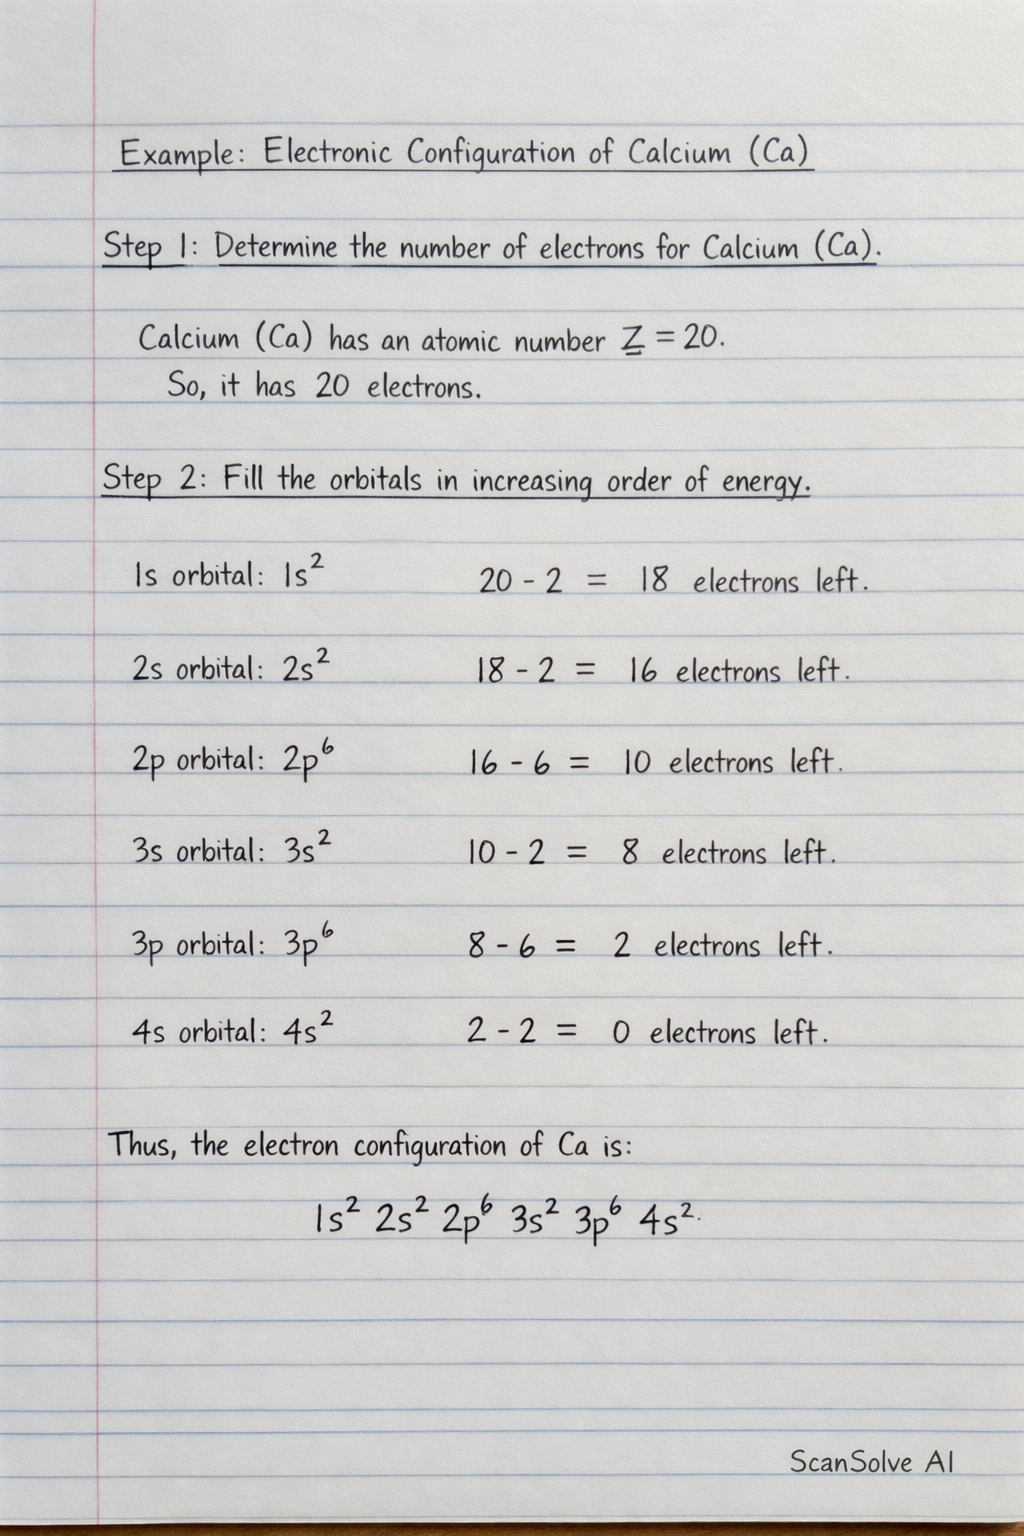 Example: Electronic Configuration of Calcium (Ca)
Step 1: Determine the number of electrons for Calcium (Ca).
Calcium (Ca) has an atomic number Z = 20.
So, it has 20 electrons.
Step 2: Fill the orbitals in increasing order of energy.
1s orbital: 1s² 20 - 2 = 18 electrons left.
2s orbital: 2s² 18 - 2 = 16 electrons left.
2p orbital: 2p⁶ 16 - 6 = 10 electrons left.
3s orbital: 3s² 10 - 2 = 8 electrons left.
3p orbital: 3p⁶ 8 - 6 = 2 electrons left.
4s orbital: 4s² 2 - 2 = 0 electrons left.
Thus, the electron configuration of Ca is:
1s² 2s² 2p⁶ 3s² 3p⁶ 4s².
ScanSolve AI